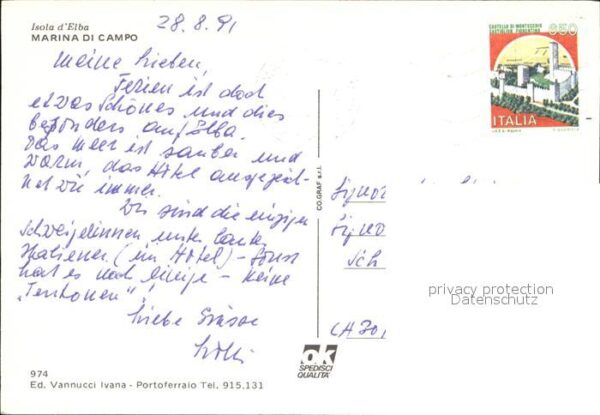 Isola d'Elba
MARINA DI CAMPO
28.8.91
Meine Lieben,
Ferien ist doch
etwas Schönes und dies
besonders auf Elba.
Das Meer ist sauber und
warm, das Hotel ausgezeich-
net wie immer.
Wir sind die einzigen
Schweizerinnen unter lauter
Italiener (im Hotel) - Sonst
hat es noch einige - keine
Liebe Grüsse
CO.GRAF s.r.l.
CASTELLO DI MONTECCHIO
CASTIGLION FIORENTINO
650
ITALIA
Signor
Signo
Sch
privacy protection
Datenschutz
CH 701
ok
SPEDISCI
QUALITA'
974
Ed. Vannucci Ivana - Portoferraio Tel. 915.131